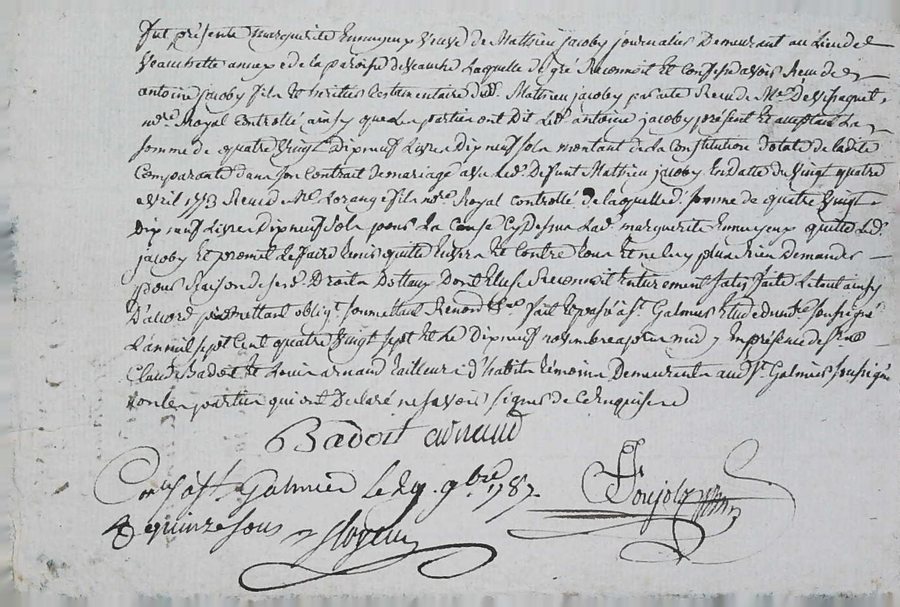 fut présente marguerite Ennuyeux veuve de Mathieu jacoby journalier Demeurant au Lieu de
veauchette annexe de la paroisse de veauche Laquelle de gré Reconnoit et Confesse avoir Reçu de
antoine jacoby fils et heritier testamentaire dud. Mathieu jacoby par acte Recu de Me
no.re Royal Controllé ainsy que Les parties ont Dit Led. antoine jacoby présent Et acceptant La
somme de quatre vingt Dix neuf Livres Dix neuf sols montant de la Constitution Dotale de ladite
Comparante dans son Contrat de mariage avec Led. Defunt Mathieu jacoby En datte du vingt quatre
avril 1753 Recu de Me Lorange fils no.re Royal Controllé de laquelle d. somme de quatre vingt
Dix neuf Livres Dix neuf sols pour La Cause Cy dessus Lad. marguerite Ennuyeux quitte Led.
jacoby Et promet Le faire tenir quitte Envers Et Contre tous Et ne luy plus Rien Demander
pour Raison de ses Droits Dottaux Dont Elle se Reconnoit Entierement satisfaite Le tout ainsy
D'accord promettant oblig.t soumettant Renonc.t &a fait Et passé a St. Galmier Etude du no.re soussigné
L'an mil sept Cent quatre vingt sept Et Le Dix neuf novembre apres midy En présence de sieurs
Claude Badoit Et Louis arnaud tailleur d'habits témoins Demeurants aud. St. Galmier soussignés
non les parties qui ont Declaré ne savoir signer de ce Enquises
Badoit arnaud
Con.lé a St. Galmier Le 29. 9bre 1787.
R quinze sous